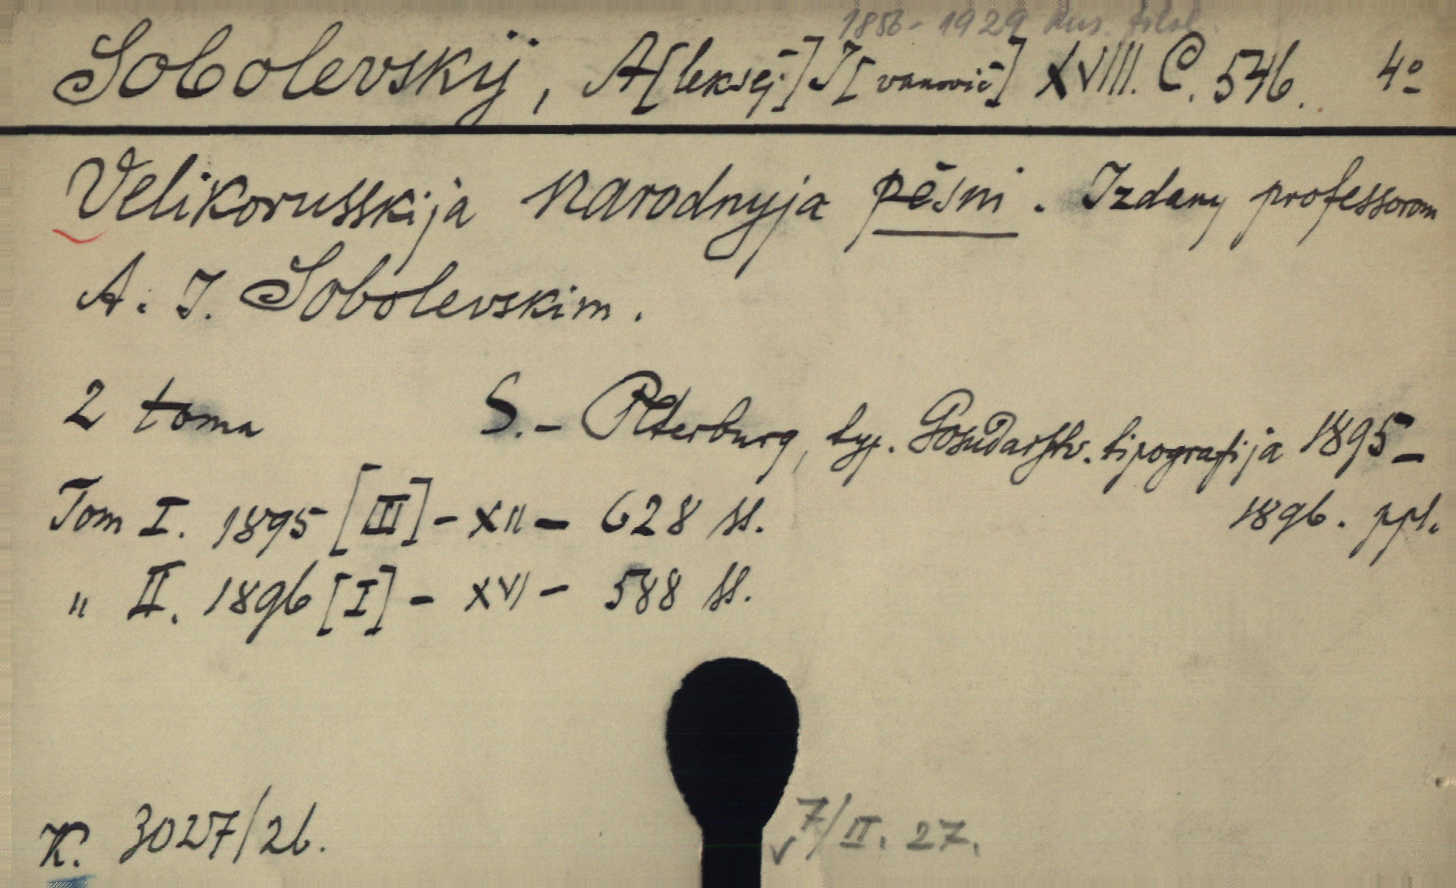 1856-1929 Rus. filol.
Sobolevskij, A[leksěj] I[vanovič] XVIII. C. 546. 4º
Velikorusskija narodnyja pěsni. Izdany professorom
A. I. Sobolevskim.
2 toma S.-Peterburg, typ. Gosudarstv. tipografija 1895-
1896. ppl.
Tom I. 1895 [III] - XII - 628 ss.
" II. 1896 [I] - XVI - 588 ss.
K. 3027/26. 7/II. 27.